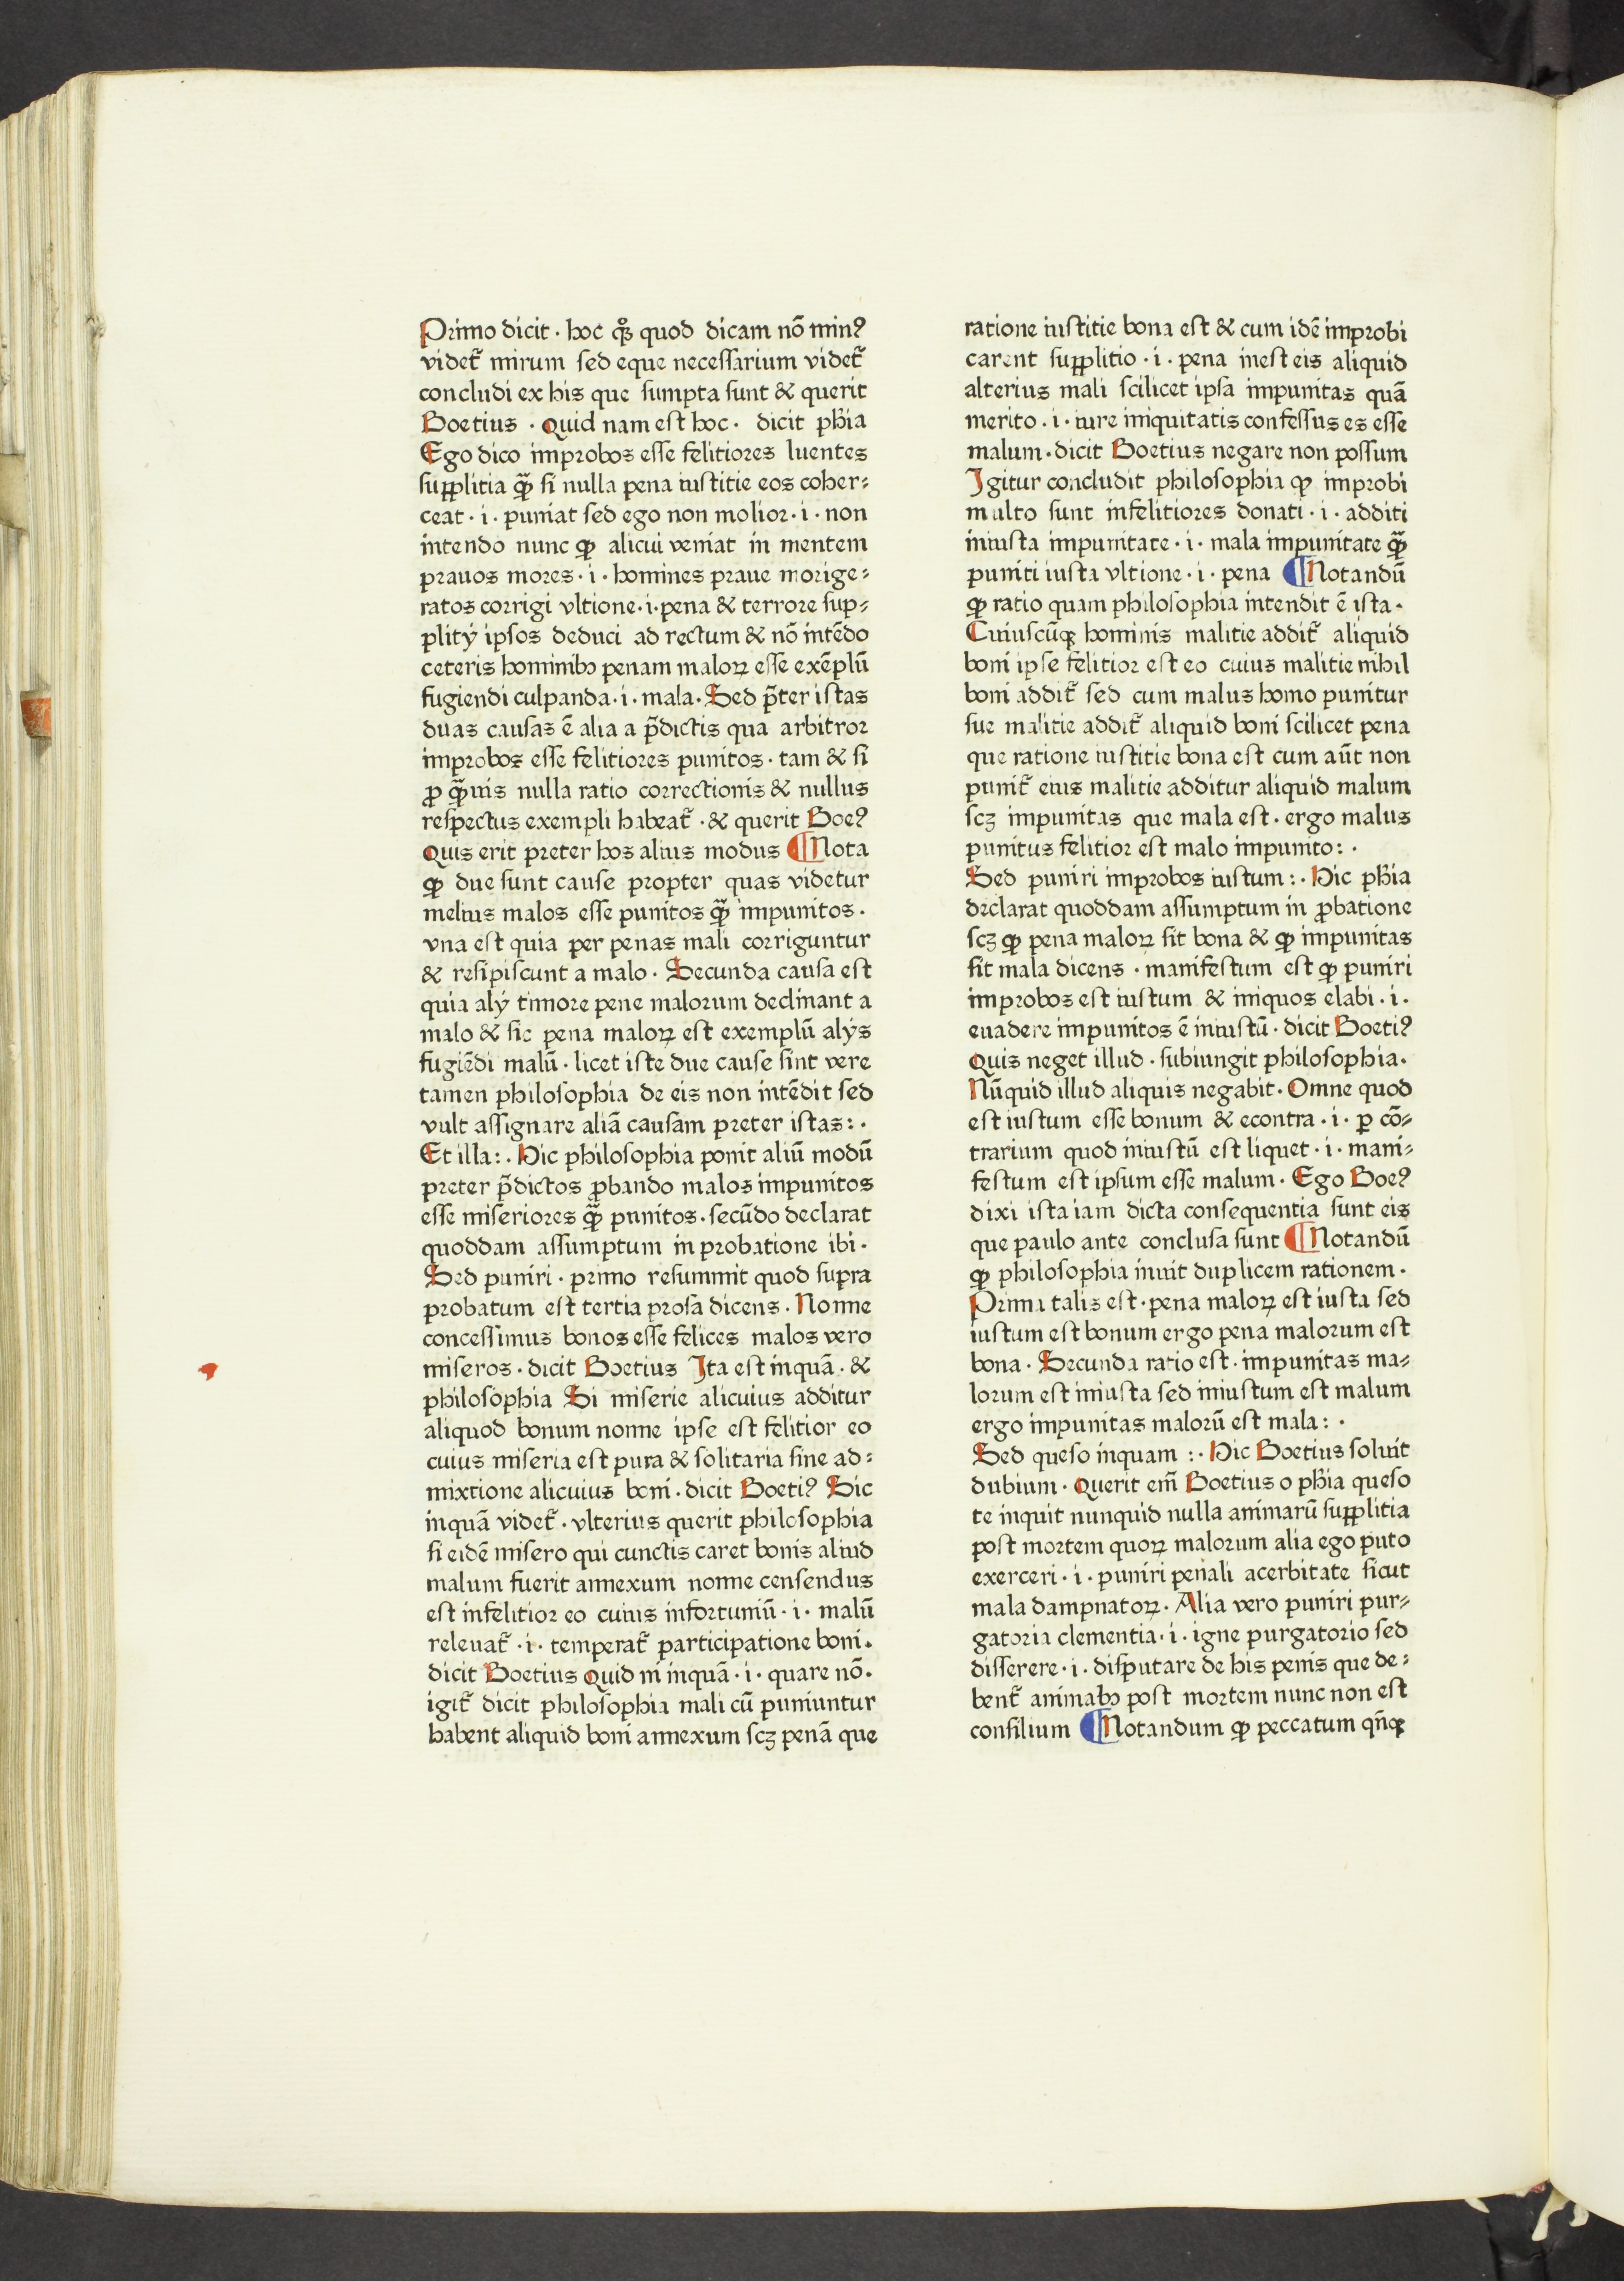 Primo dicit · hoc qͦꝫ quod dicam nō minꝰ
videt᷑ mirum sed eque necessarium videt᷑
concludi ex his que sumpta sunt & querit
Boetius · Quid nam est hoc · dicit pħia
Ego dico improbos esse felitiores luentes
supplitia ꝙ̄ si nulla pena iustitie eos coher⸗
ceat · i · puniat sed ego non molior · i · non
intendo nunc ꝙ alicui veniat in mentem
prauos mores · i · homines praue morige⸗
ratos corrigi vltione · i · pena & terrore sup⸗
plitÿ ipsos deduci ad rectum & nō intēdo
ceteris hominibꝫ penam maloꝝ esse exēplū
fugiendi culpanda · i · mala · Sed p̄ter istas
duas causas ē alia a p̄dictis qua arbitror
improbos esse felitiores punitos · tam & si
ꝓ ꝙ̄uis nulla ratio correctionis & nullus
respectus exempli habeat᷑ · & querit Boeꝰ
Quis erit preter hos alius modus ¶ Nota
ꝙ due sunt cause propter quas videtur
melius malos esse punitos ꝙ̄ impunitos ·
vna est quia per penas mali corriguntur
& resipiscunt a malo · Secunda causa est
quia alÿ timore pene malorum declinant a
malo & sic pena maloꝝ est exemplū alÿs
fugiēdi malū · licet iste due cause sint vere
tamen philosophia de eis non intēdit sed
vult assignare aliā causam preter istas : ·
Et illa : · Hic philosophia ponit aliū modū
preter p̄dictos ꝓbando malos impunitos
esse miseriores ꝙ̄ punitos · secūdo declarat
quoddam assumptum in probatione ibi ·
Sed puniri · primo resummit quod supra
probatum est tertia prosa dicens · Nonne
concessimus bonos esse felices malos vero
miseros · dicit Boetius Ita est inquā · &
philosophia Si miserie alicuius additur
aliquod bonum nonne ipse est felitior eo
cuius miseria est pura & solitaria sine ad⸗
mixtione alicuius boni · dicit Boetiꝰ Sic
inquā videt᷑ · vlterius querit philosophia
si eidē misero qui cunctis caret bonis aliud
malum fuerit annexum nonne censendus
est infelitior eo cuius infortuniū · i · malū
releuat᷑ · i · temperat᷑ participatione boni ·
dicit Boetius Quid ni inquā · i · quare nō ·
igit᷑ dicit philosophia mali cū puniuntur
habent aliquid boni annexum scꝫ penā que
ratione iustitie bona est & cum idē improbi
carent supplitio · i · pena inest eis aliquid
alterius mali scilicet ipsa impunitas quā
merito · i · iure iniquitatis confessus es esse
malum · dicit Boetius negare non possum
Igitur concludit philosophia ꝙ improbi
multo sunt infelitiores donati · i · additi
iniusta impunitate · i · mala impunitate ꝙ̄
puniti iusta vltione · i · pena ¶ Notandū
ꝙ ratio quam philosophia intendit ē ista ·
Cuiuscūqꝫ hominis malitie addit᷑ aliquid
boni ipse felitior est eo cuius malitie nihil
boni addit᷑ sed cum malus homo punitur
sue malitie addit᷑ aliquid boni scilicet pena
que ratione iustitie bona est cum aūt non
punit᷑ eius malitie additur aliquid malum
scꝫ impunitas que mala est · ergo malus
punitus felitior est malo impunito : ·
Sed puniri improbos iustum : · Hic pħia
declarat quoddam assumptum in ꝓbatione
scꝫ ꝙ pena maloꝝ sit bona & ꝙ impunitas
sit mala dicens · manifestum est ꝙ puniri
improbos est iustum & iniquos elabi · i ·
euadere impunitos ē iniustū · dicit Boetiꝰ
Quis neget illud · subiungit philosophia ·
Nūquid illud aliquis negabit · Omne quod
est iustum esse bonum & econtra · i · ꝑ cō⸗
trarium quod iniustū est liquet · i · mani⸗
festum est ipsum esse malum · Ego Boeꝰ
dixi ista iam dicta consequentia sunt eis
que paulo ante conclusa sunt ¶ Notandū
ꝙ philosophia inuit duplicem rationem ·
Prima talis est · pena maloꝝ est iusta sed
iustum est bonum ergo pena malorum est
bona · Secunda ratio est · impunitas ma⸗
lorum est iniusta sed iniustum est malum
ergo impunitas malorū est mala : ·
Sed queso inquam : · Hic Boetius soluit
dubium · Querit em̄ Boetius o pħia queso
te inquit nunquid nulla animarū supplitia
post mortem quoꝝ malorum alia ego puto
exerceri · i · puniri penali acerbitate sicut
mala dampnatoꝝ · Alia vero puniri pur⸗
gatoria clementia · i · igne purgatorio sed
disserere · i · disputare de his penis que de⸗
bent᷑ animabꝫ post mortem nunc non est
consilium ¶ Notandum ꝙ peccatum qn̄qꝫ